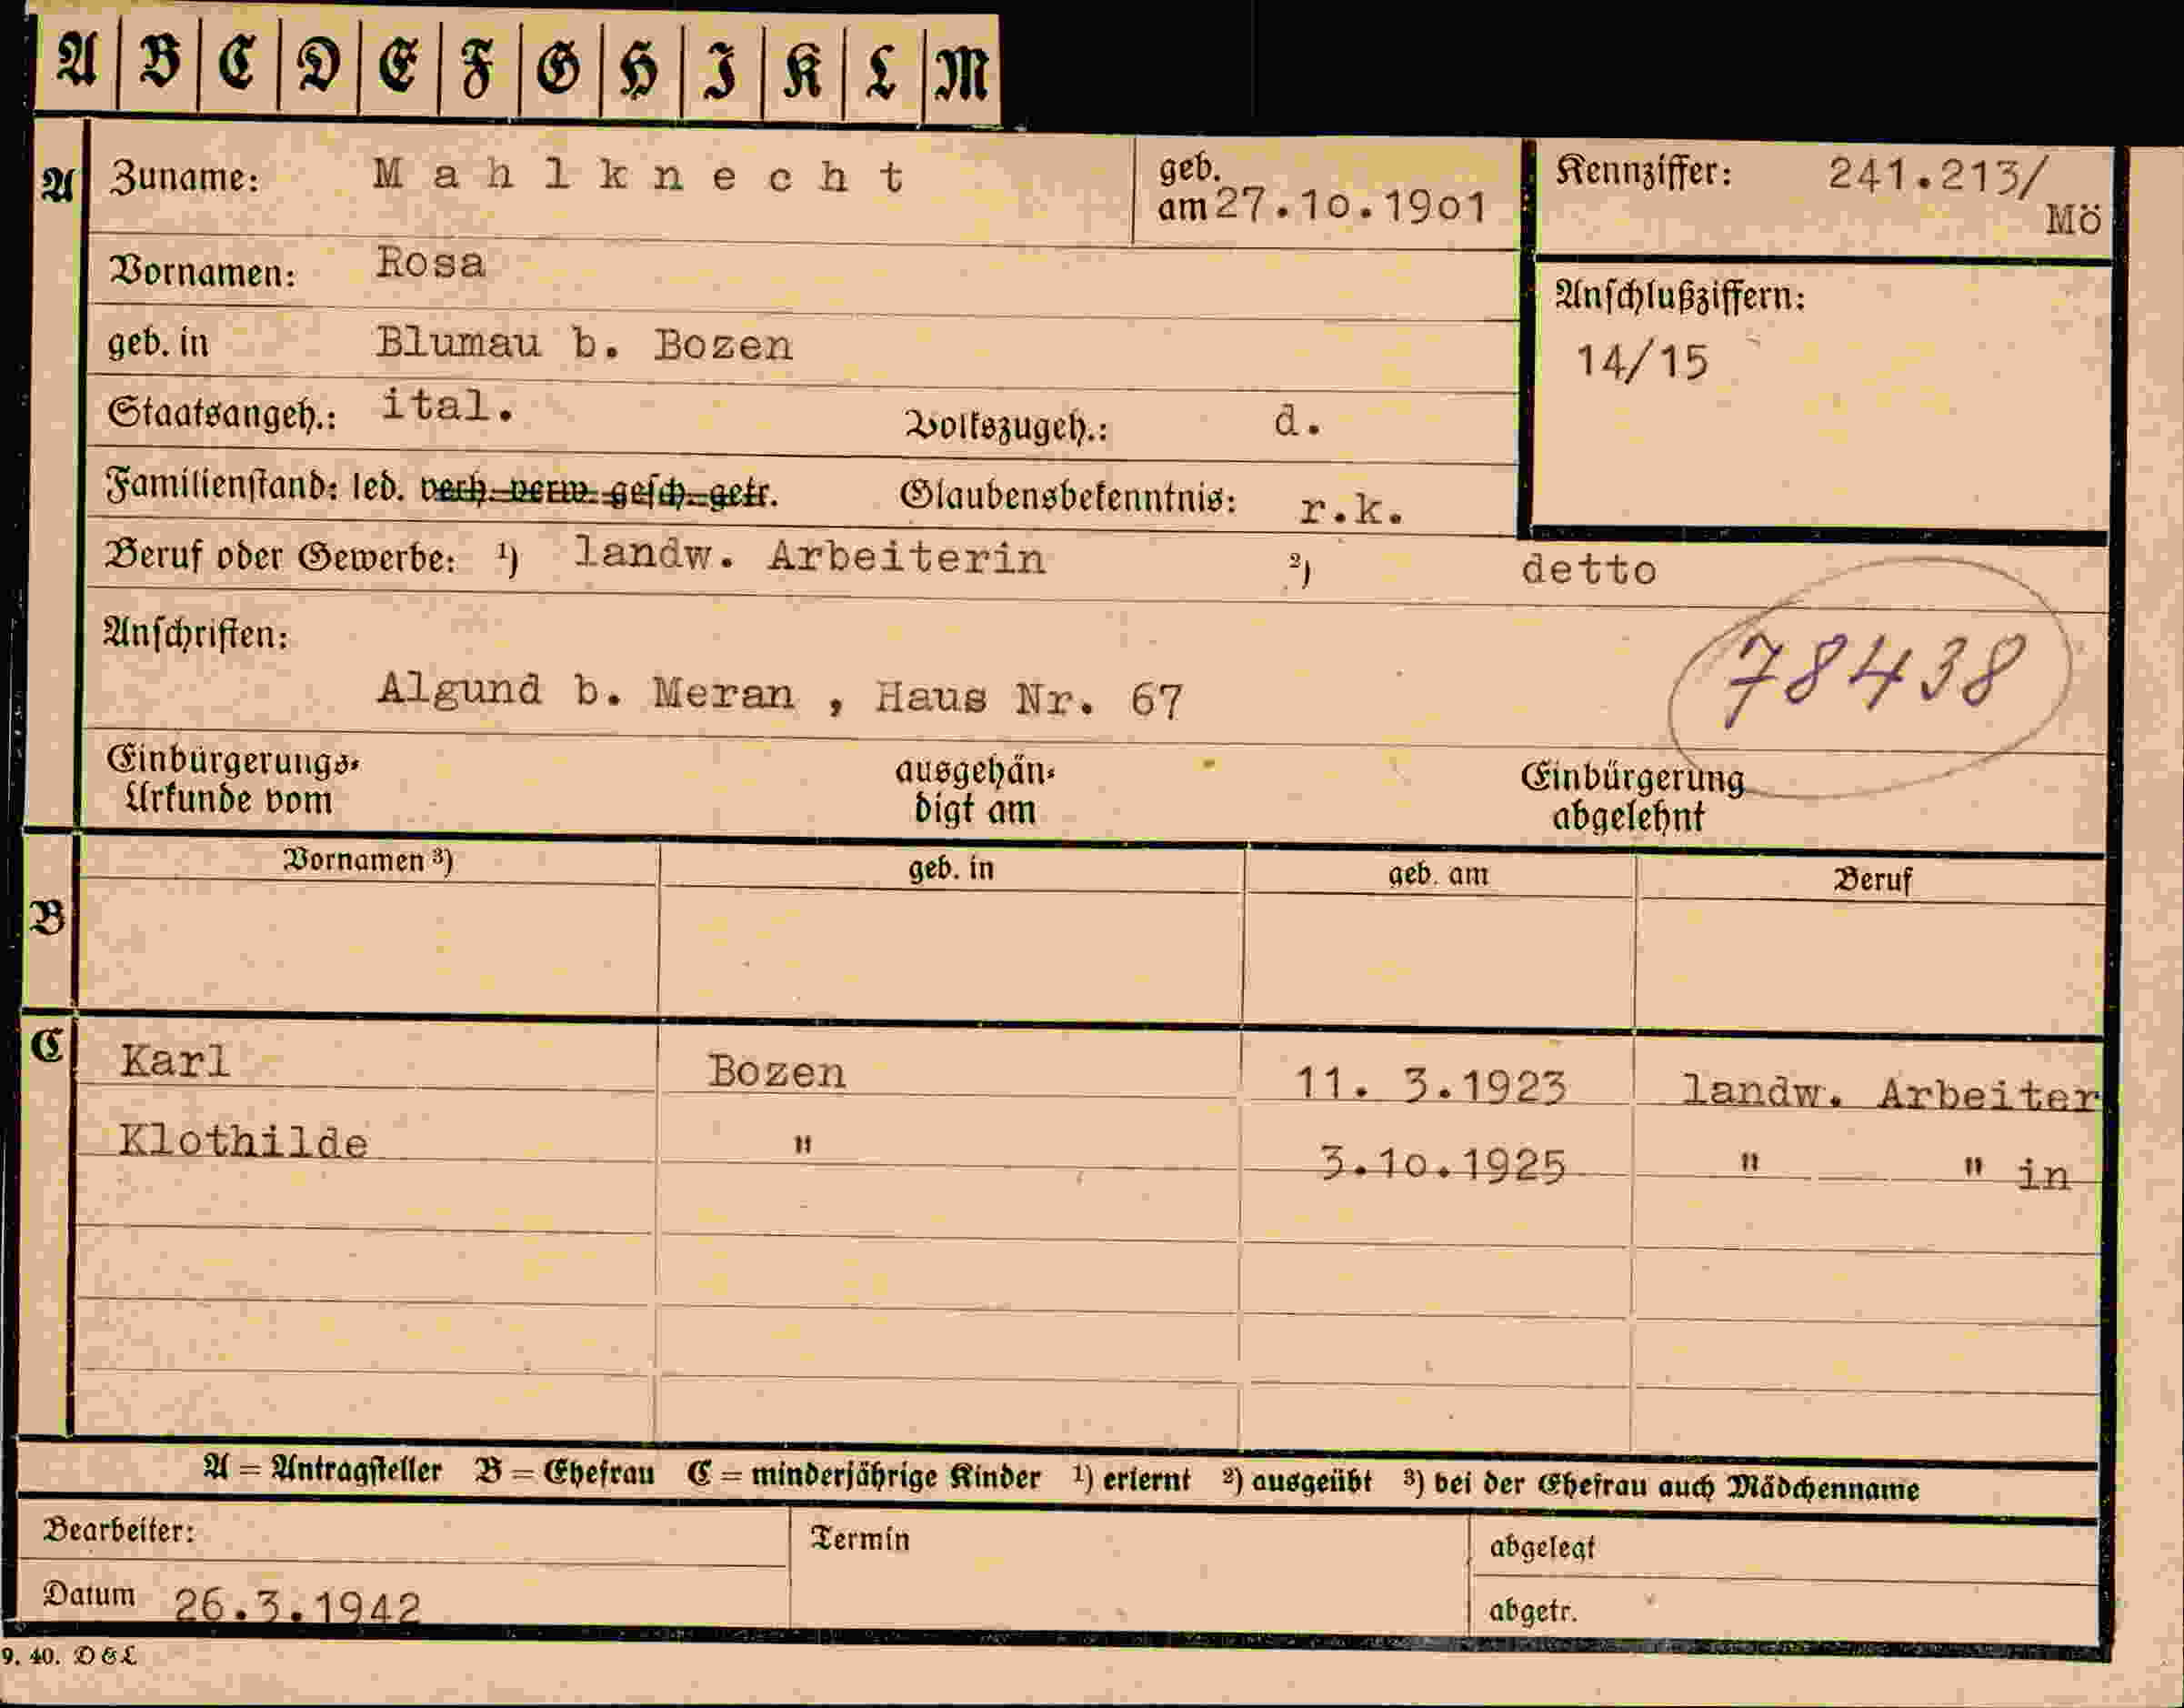 A B C D E F G H I K L M
A Zuname: Mahlknecht geb. am 27.10.1901 Kennziffer: 241.213/ Mö
Vornamen: Rosa
Anschlußziffern:
geb. in Blumau b. Bozen
14/15
Staatsangeh.: ital. Volkszugeh.: d.
Familienstand: led. verh. verw. gesch. getr. Glaubensbekenntnis: r.k.
Beruf oder Gewerbe: ¹) landw. Arbeiterin ²) detto
Anschriften:
78438
Algund b. Meran , Haus Nr. 67
Einbürgerungs- ausgehän- Einbürgerung
Urkunde vom digt am abgelehnt
Vornamen ³) geb. in geb. am Beruf
B
C Karl Bozen 11. 3.1923 landw. Arbeiter
Klothilde " 3.10.1925 " " in
A = Antragsteller B = Ehefrau C = minderjährige Kinder ¹) erlernt ²) ausgeübt ³) bei der Ehefrau auch Mädchenname
Bearbeiter: Termin abgelegt
Datum 26.3.1942 abgetr.
9. 40. D & L